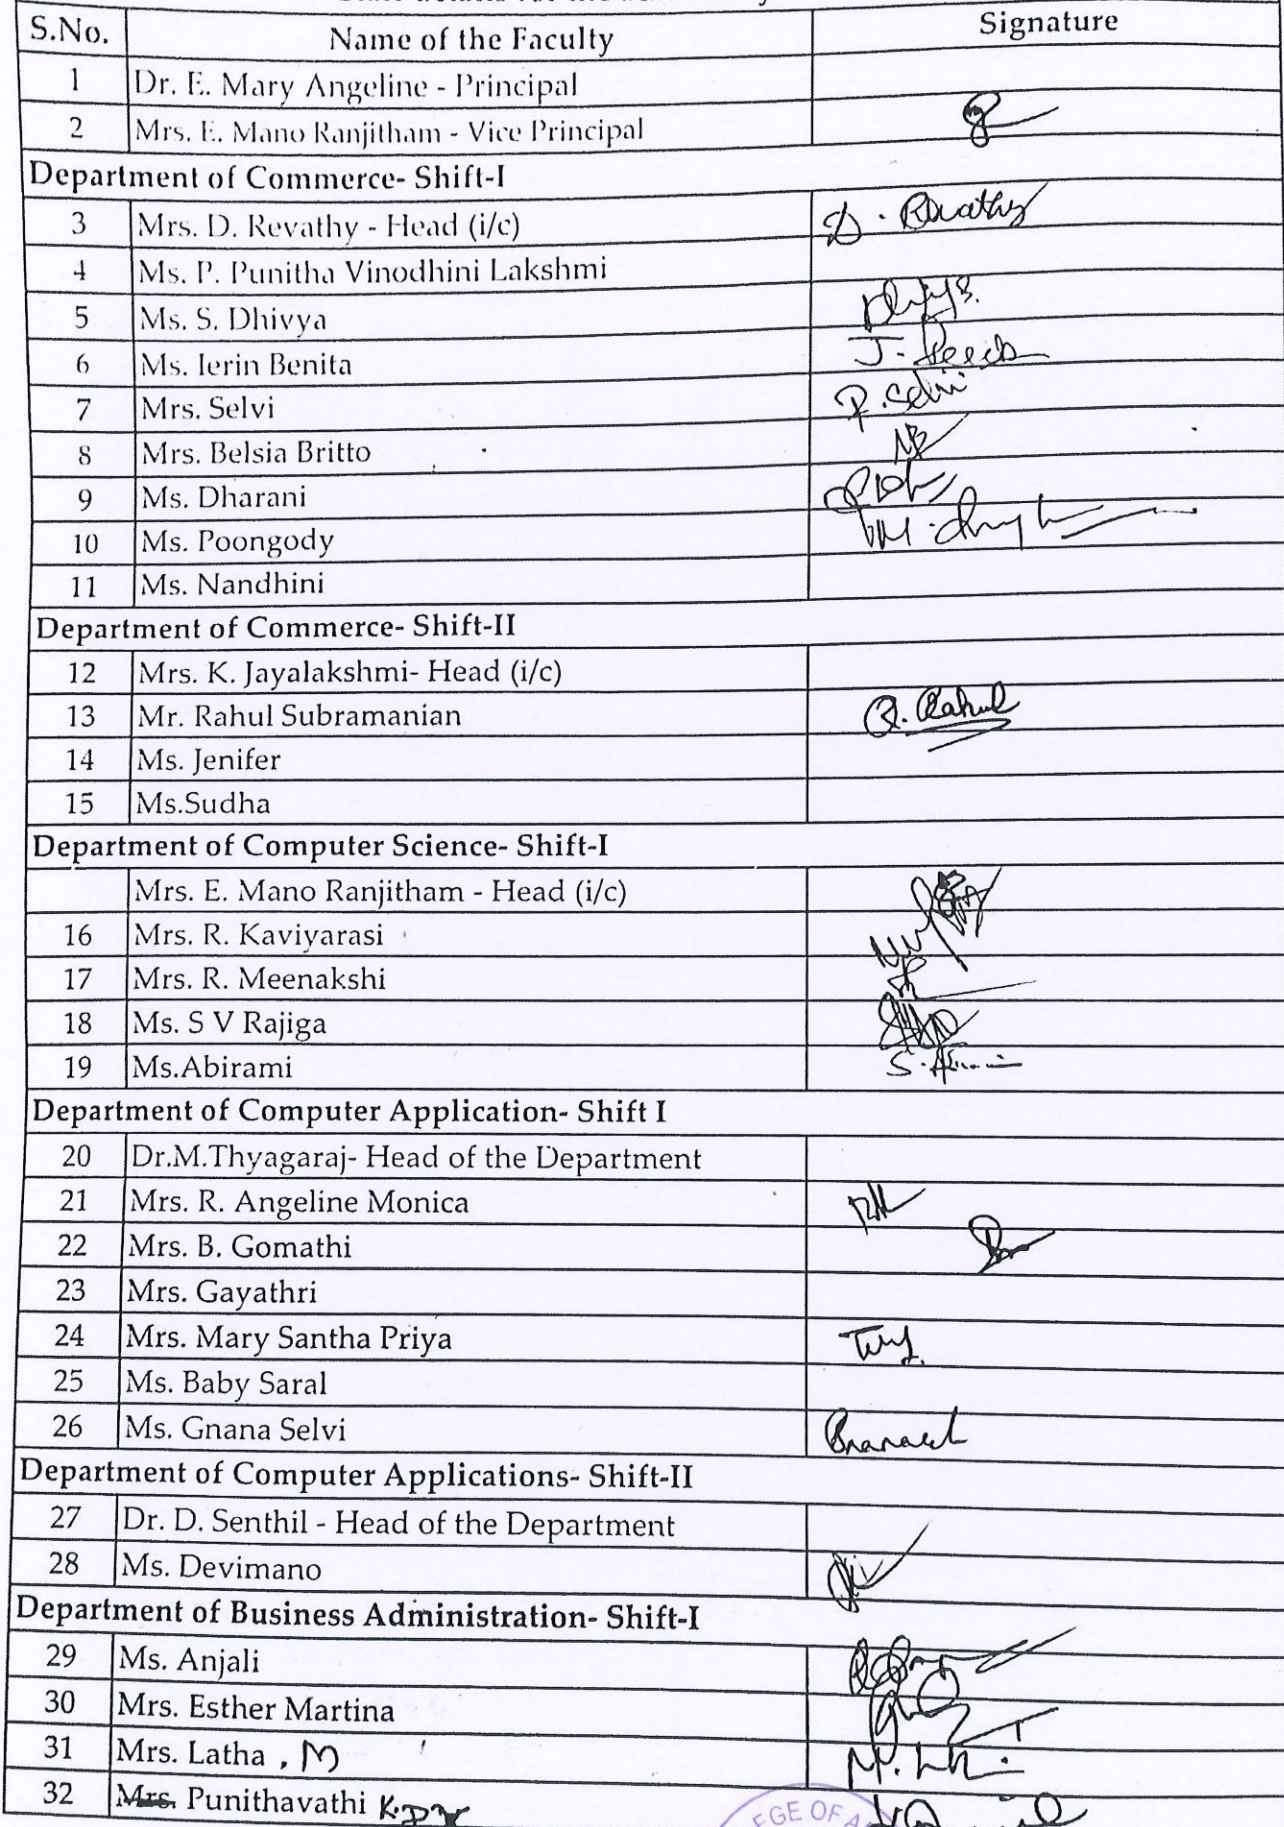 S.No. Name of the Faculty Signature
1 Dr. E. Mary Angeline - Principal
2 Mrs. E. Mano Ranjitham - Vice Principal
Department of Commerce- Shift-I
3 Mrs. D. Revathy - Head (i/c) D. Revathy
4 Ms. P. Punitha Vinodhini Lakshmi
5 Ms. S. Dhivya
6 Ms. Ierin Benita
7 Mrs. Selvi P. Selvi
8 Mrs. Belsia Britto
9 Ms. Dharani
10 Ms. Poongody
11 Ms. Nandhini
Department of Commerce- Shift-II
12 Mrs. K. Jayalakshmi- Head (i/c)
13 Mr. Rahul Subramanian R. Rahul
14 Ms. Jenifer
15 Ms.Sudha
Department of Computer Science- Shift-I
Mrs. E. Mano Ranjitham - Head (i/c)
16 Mrs. R. Kaviyarasi
17 Mrs. R. Meenakshi
18 Ms. S V Rajiga
19 Ms.Abirami
Department of Computer Application- Shift I
20 Dr.M.Thyagaraj- Head of the Department
21 Mrs. R. Angeline Monica
22 Mrs. B. Gomathi
23 Mrs. Gayathri
24 Mrs. Mary Santha Priya
25 Ms. Baby Saral
26 Ms. Gnana Selvi
Department of Computer Applications- Shift-II
27 Dr. D. Senthil - Head of the Department
28 Ms. Devimano
Department of Business Administration- Shift-I
29 Ms. Anjali
30 Mrs. Esther Martina
31 Mrs. Latha , M
32 Mrs. Punithavathi
EGE OF A